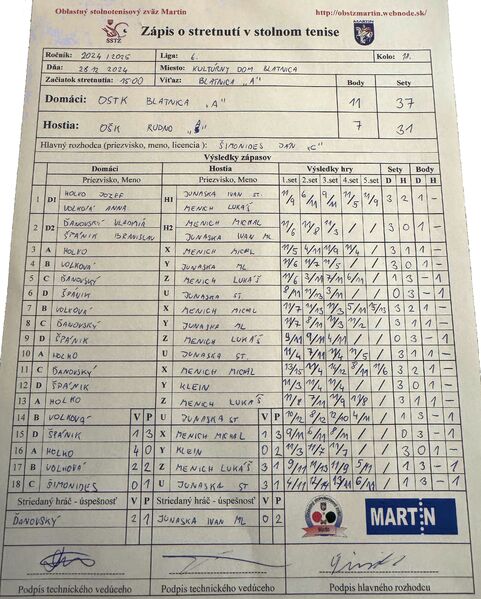 Oblastný stolnotenisový zväz Martin
http://obstzmartin.webnode.sk/
SSTZ
MARTIN
Zápis o stretnutí v stolnom tenise
Ročník: 2024/2025 Liga: 6. Kolo: 11.
Dňa: 28.12 2024 Miesto: KULTÚRNY DOM BLATNICA
Začiatok stretnutia: 15:00 Víťaz: BLATNICA "A" Body Sety
Domáci: OSTK BLATNICA "A" 11 37
Hostia: OŠK RUDNO 7 31
Hlavný rozhodca (priezvisko, meno, licencia): ŠIMONIDES JÁN "C"
Výsledky zápasov
Domáci Hostia Výsledky hry Sety Body
Priezvisko, Meno Priezvisko, Meno 1.set 2.set 3.set 4.set 5.set D H D H
1 D1 HOLKO JOZEF H1 JUNASKA IVAN ST. 3 2 1 -
VOLKOVÁ ANNA MENICH LUKÁŠ
2 D2 ĎANOVSKÝ VLADIMÍR H2 MENICH MICHAL 11/6 11/8 11/3 / / 3 0 1 -
ŠPÁNIK BRANISLAV JUNASKA IVAN ML
3 A HOLKO X MENICH MICHAL 11/5 4/11 11/9 11/4 / 3 1 1 -
4 B VOLKOVÁ Y JUNASKA ML 11/6 11/7 11/5 / / 3 0 1 -
5 C ĎANOVSKÝ Z MENICH LUKÁŠ 11/6 3/11 7/11 6/11 / 1 3 - 1
6 D ŠPÁNIK U JUNASKA ST 8/11 11/13 3/11 / / 0 3 - 1
7 B VOLKOVÁ X MENICH MICHAL 11/7 11/13 11/3 15/13 3 2 1 -
8 C ĎANOVSKÝ Y JUNASKA ML 11/7 8/11 11/3 11/2 / 3 1 1 -
9 D ŠPÁNIK Z MENICH LUKÁŠ 9/11 9/11 4/11 / / 0 3 - 1
10 A HOLKO U JUNASKA ST. 11/4 11/4 11/5 / 3 1 1 -
11 C ĎANOVSKÝ X MENICH MICHAL 13/15 11/4 8/11 11/6 3 2 1 -
12 D ŠPÁNIK Y KLEIN 11/2 11/4 11/4 / / 3 0 1 -
13 A HOLKO Z MENICH LUKÁŠ 11/8 11/9 11/8 / 3 1 1 -
14 B VOLKOVÁ V P U JUNASKA ST V P 10/12 8/12 12/10 4/11 / 1 3 - 1
15 D ŠPÁNIK 1 3 X MENICH MICHAL 1 3 9/11 6/11 8/11 / / 0 3 - 1
16 A HOLKO 4 0 Y KLEIN 0 2 11/3 11/7 11/7 / / 3 0 1 -
17 B VOLKOVÁ 2 2 Z MENICH LUKÁŠ 3 1 9/11 11/13 11/9 5/11 / 1 3 - 1
18 C ŠIMONIDES 0 1 U JUNASKA ST. 3 1 4/11 6/11 / 1 3 - 1
Striedaný hráč - úspešnosť V P Striedaný hráč - úspešnosť V P
ĎANOVSKÝ 2 1 JUNASKA IVAN ML 0 2
MARTIN
Podpis technického vedúceho Podpis technického vedúceho Podpis hlavného rozhodcu